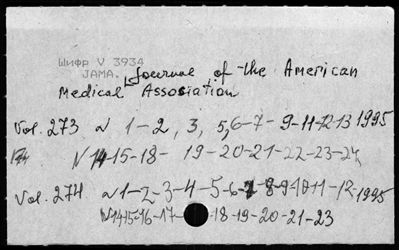 Шифр V 3934
JAMA. Journal of the American
Medical Association
Vol. 273 N 1-2, 3, 5,6-7- 9-11-12-13 1995
N 14-15-18- 19-20-21-22-23-24
Vol. 274 N 1-2-3-4-5-6-7 8-9-10-11-12-1995
N14-15-16-17- 18-19-20-21-23